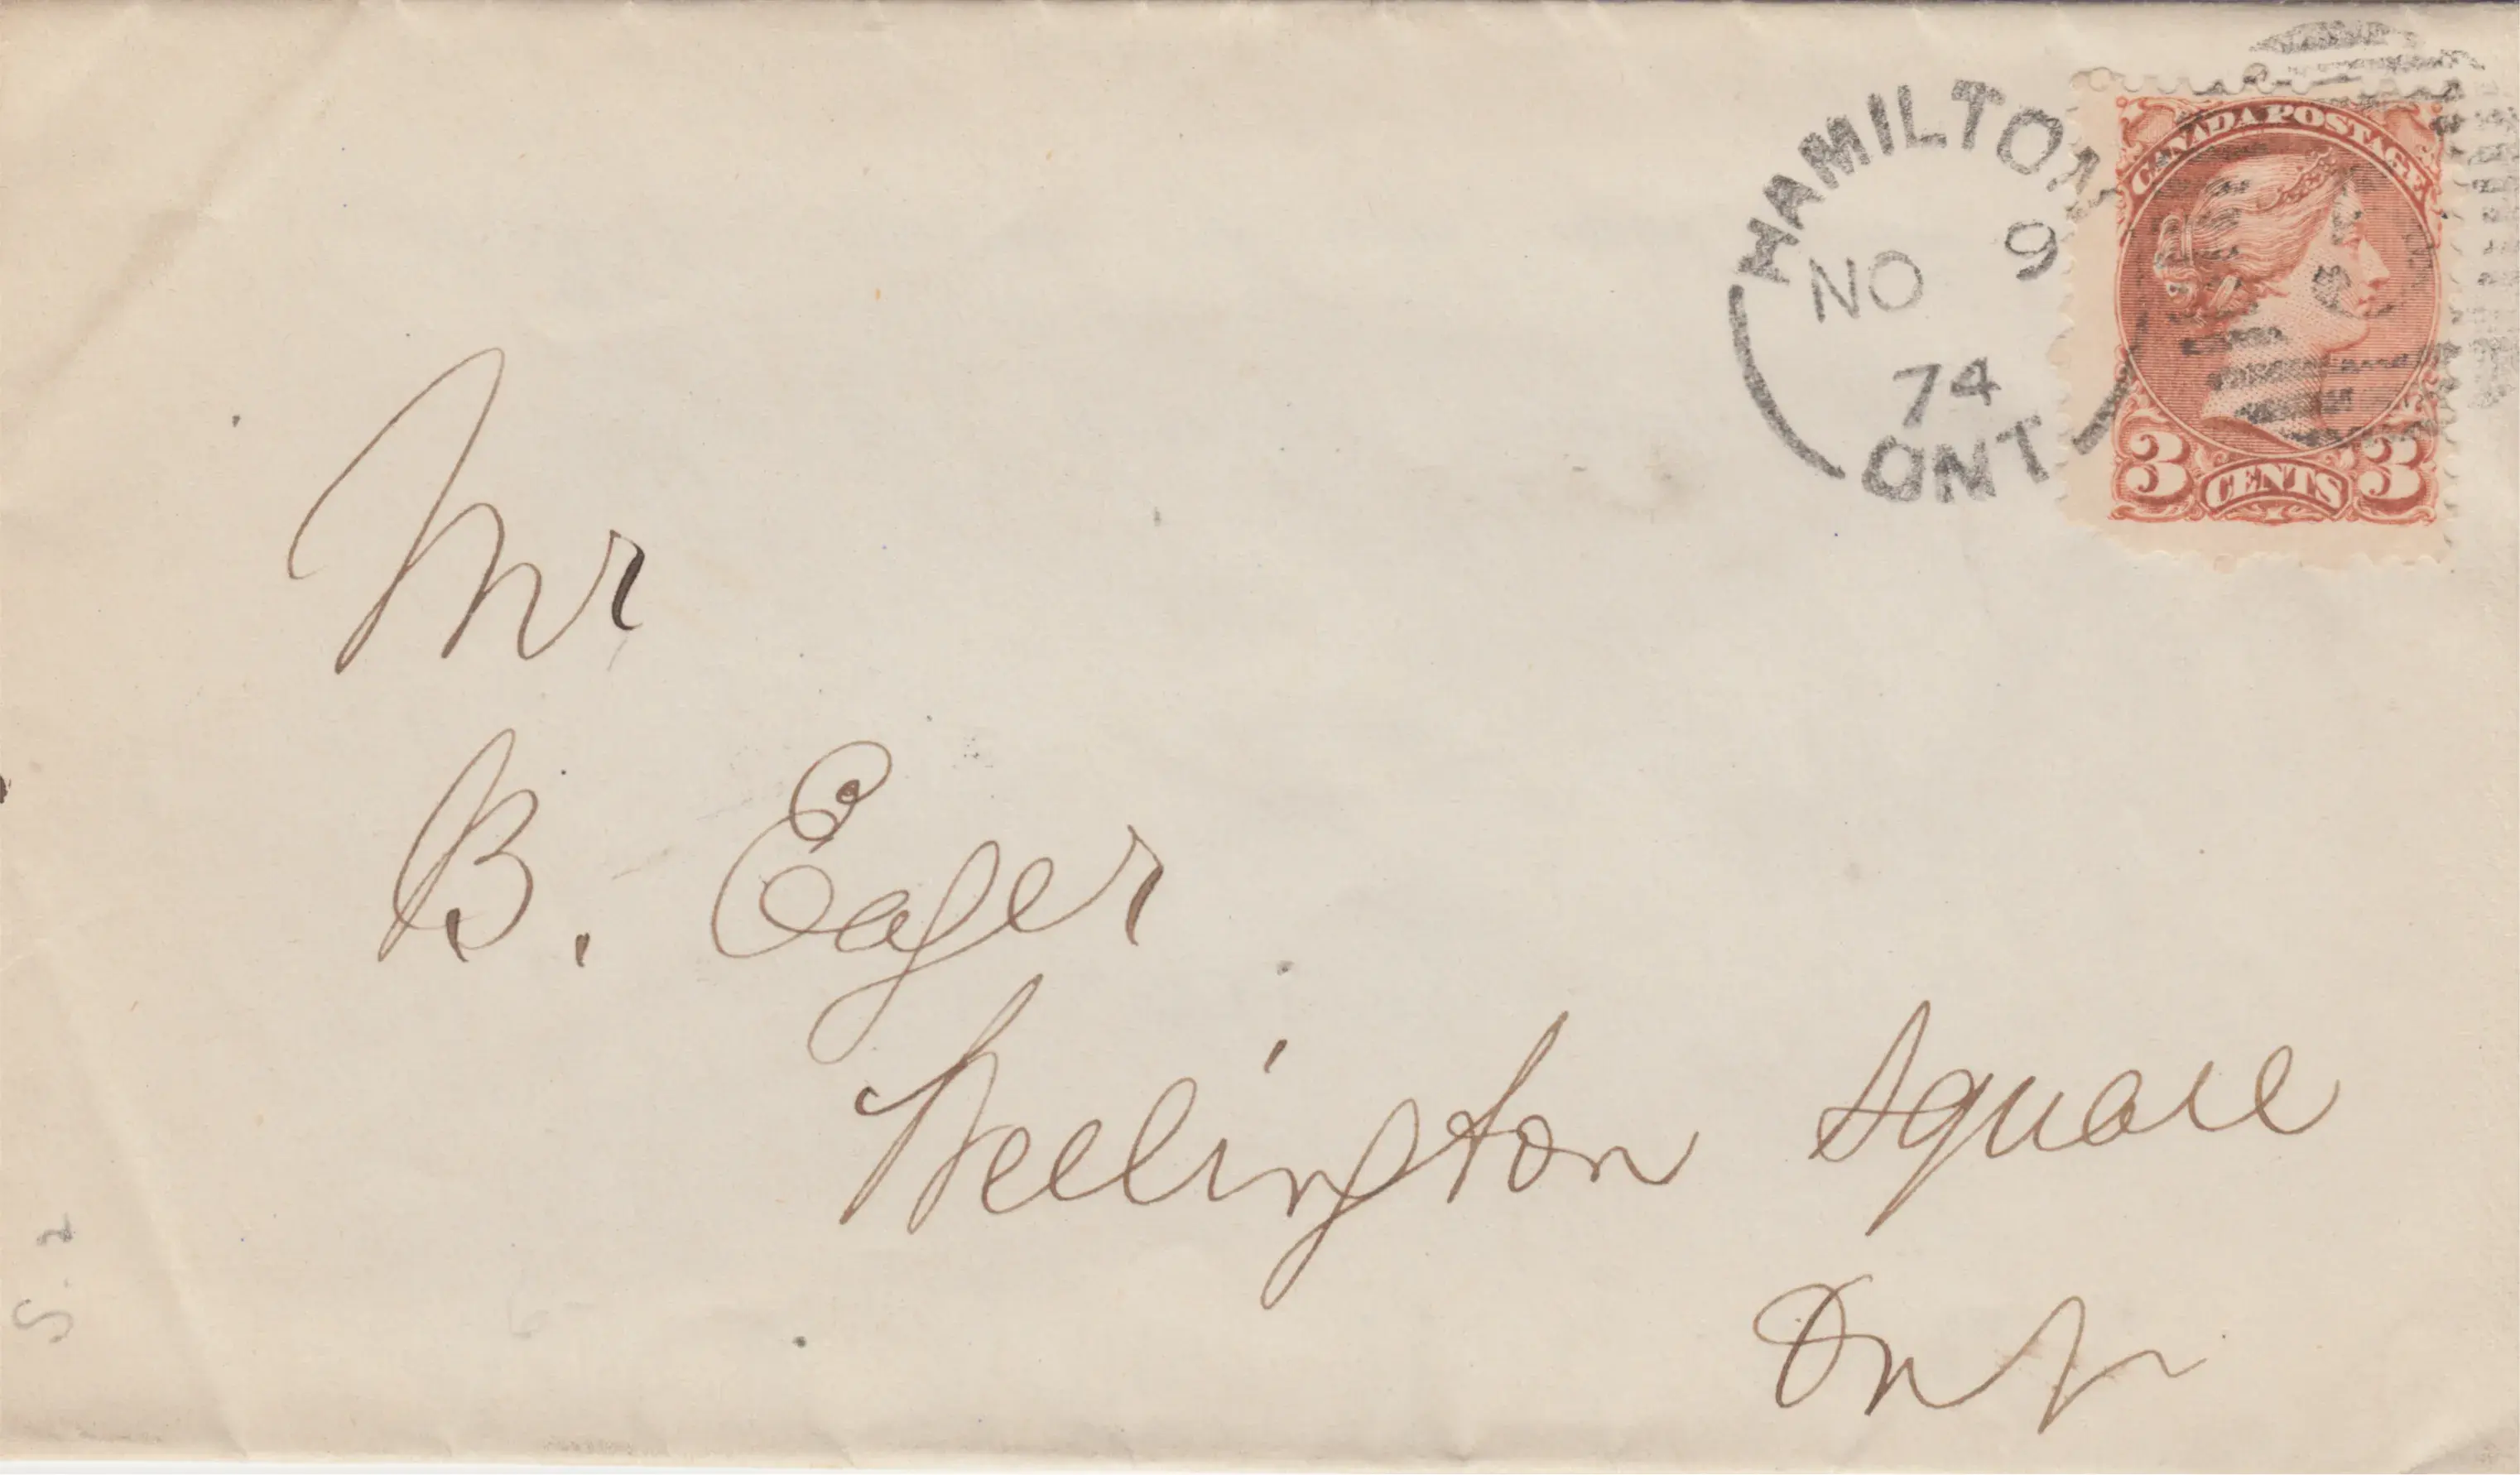 HAMILTON
NO 9
74
ONT
CANADA POSTAGE
3 CENTS 3
Mr
B. Eager
Wellington Square
Ont
S. 2